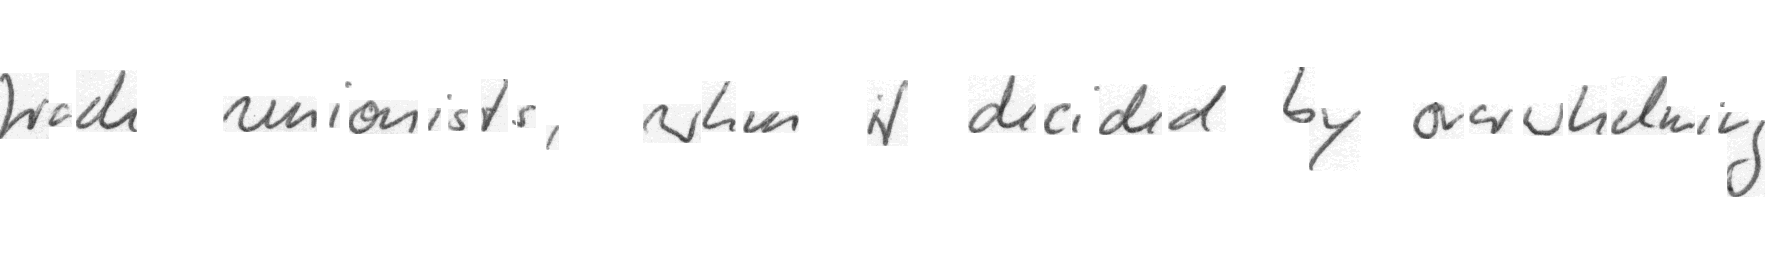 trade unionists, when it decided by overwhelming